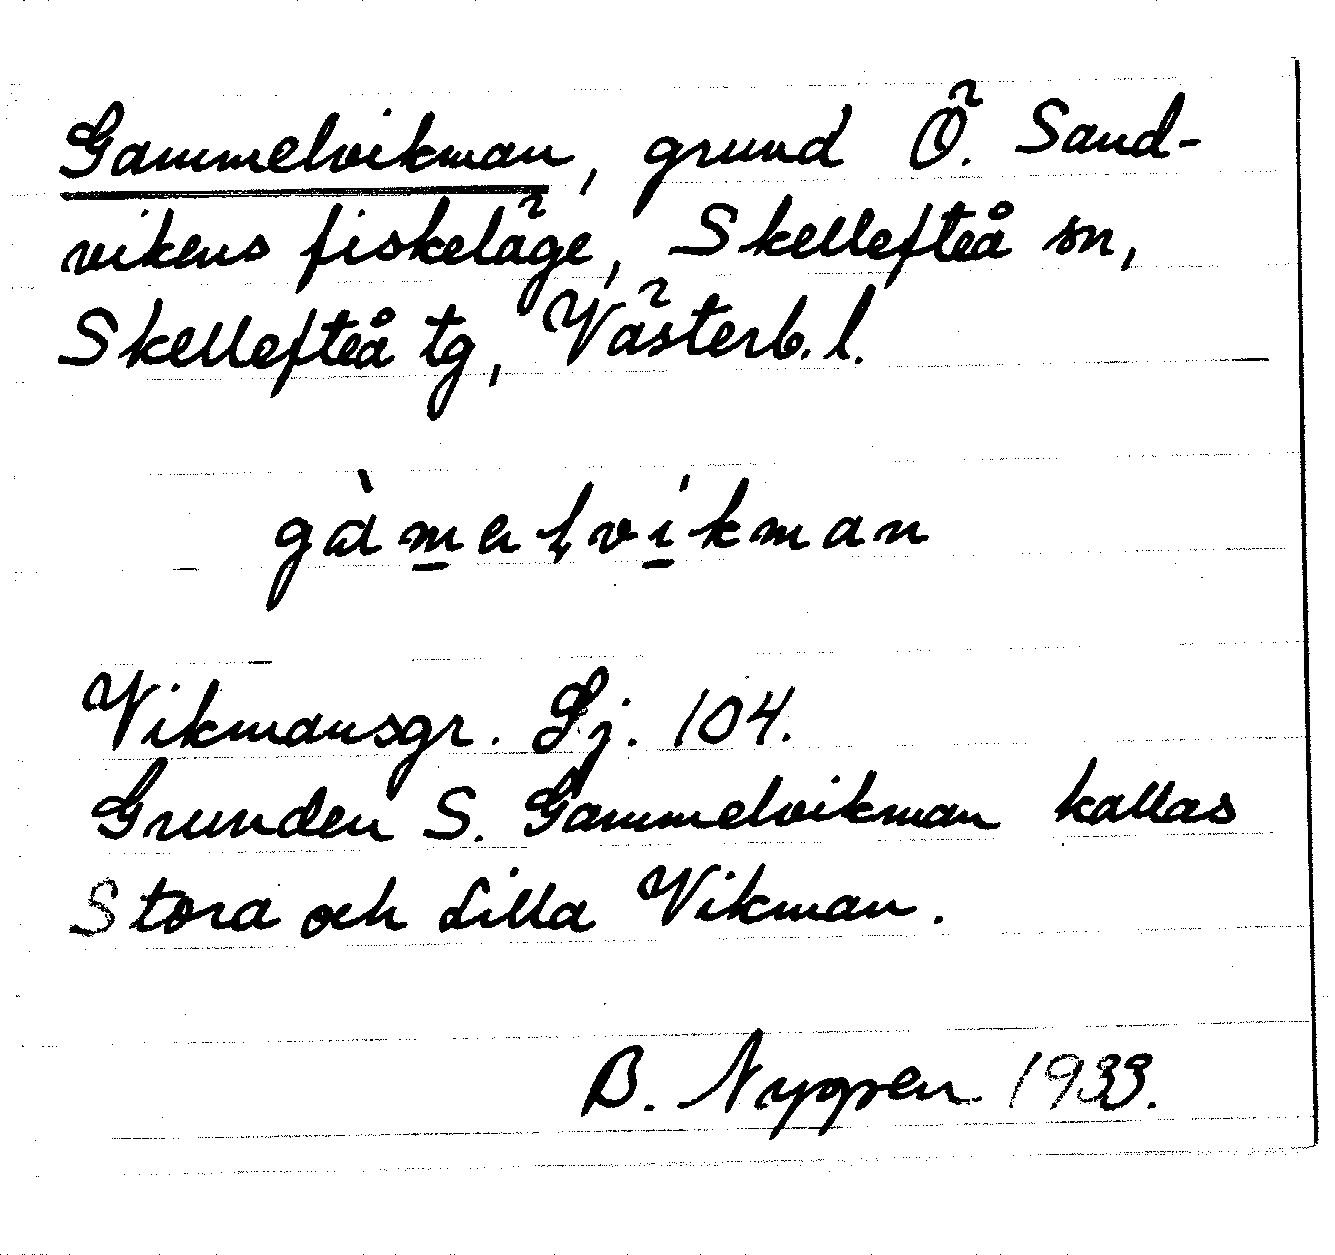 Gammelvikman, grund Ö. Sand-
vikens fiskeläge, Skellefteå sn,
Skellefteå tg, Västerb. l.
gàmelvíkman
Vikmansgr. Sj. 104.
Grunden S. Gammelvikman kallas
Stora och Lilla Vikman.
B. Nygren 1933.